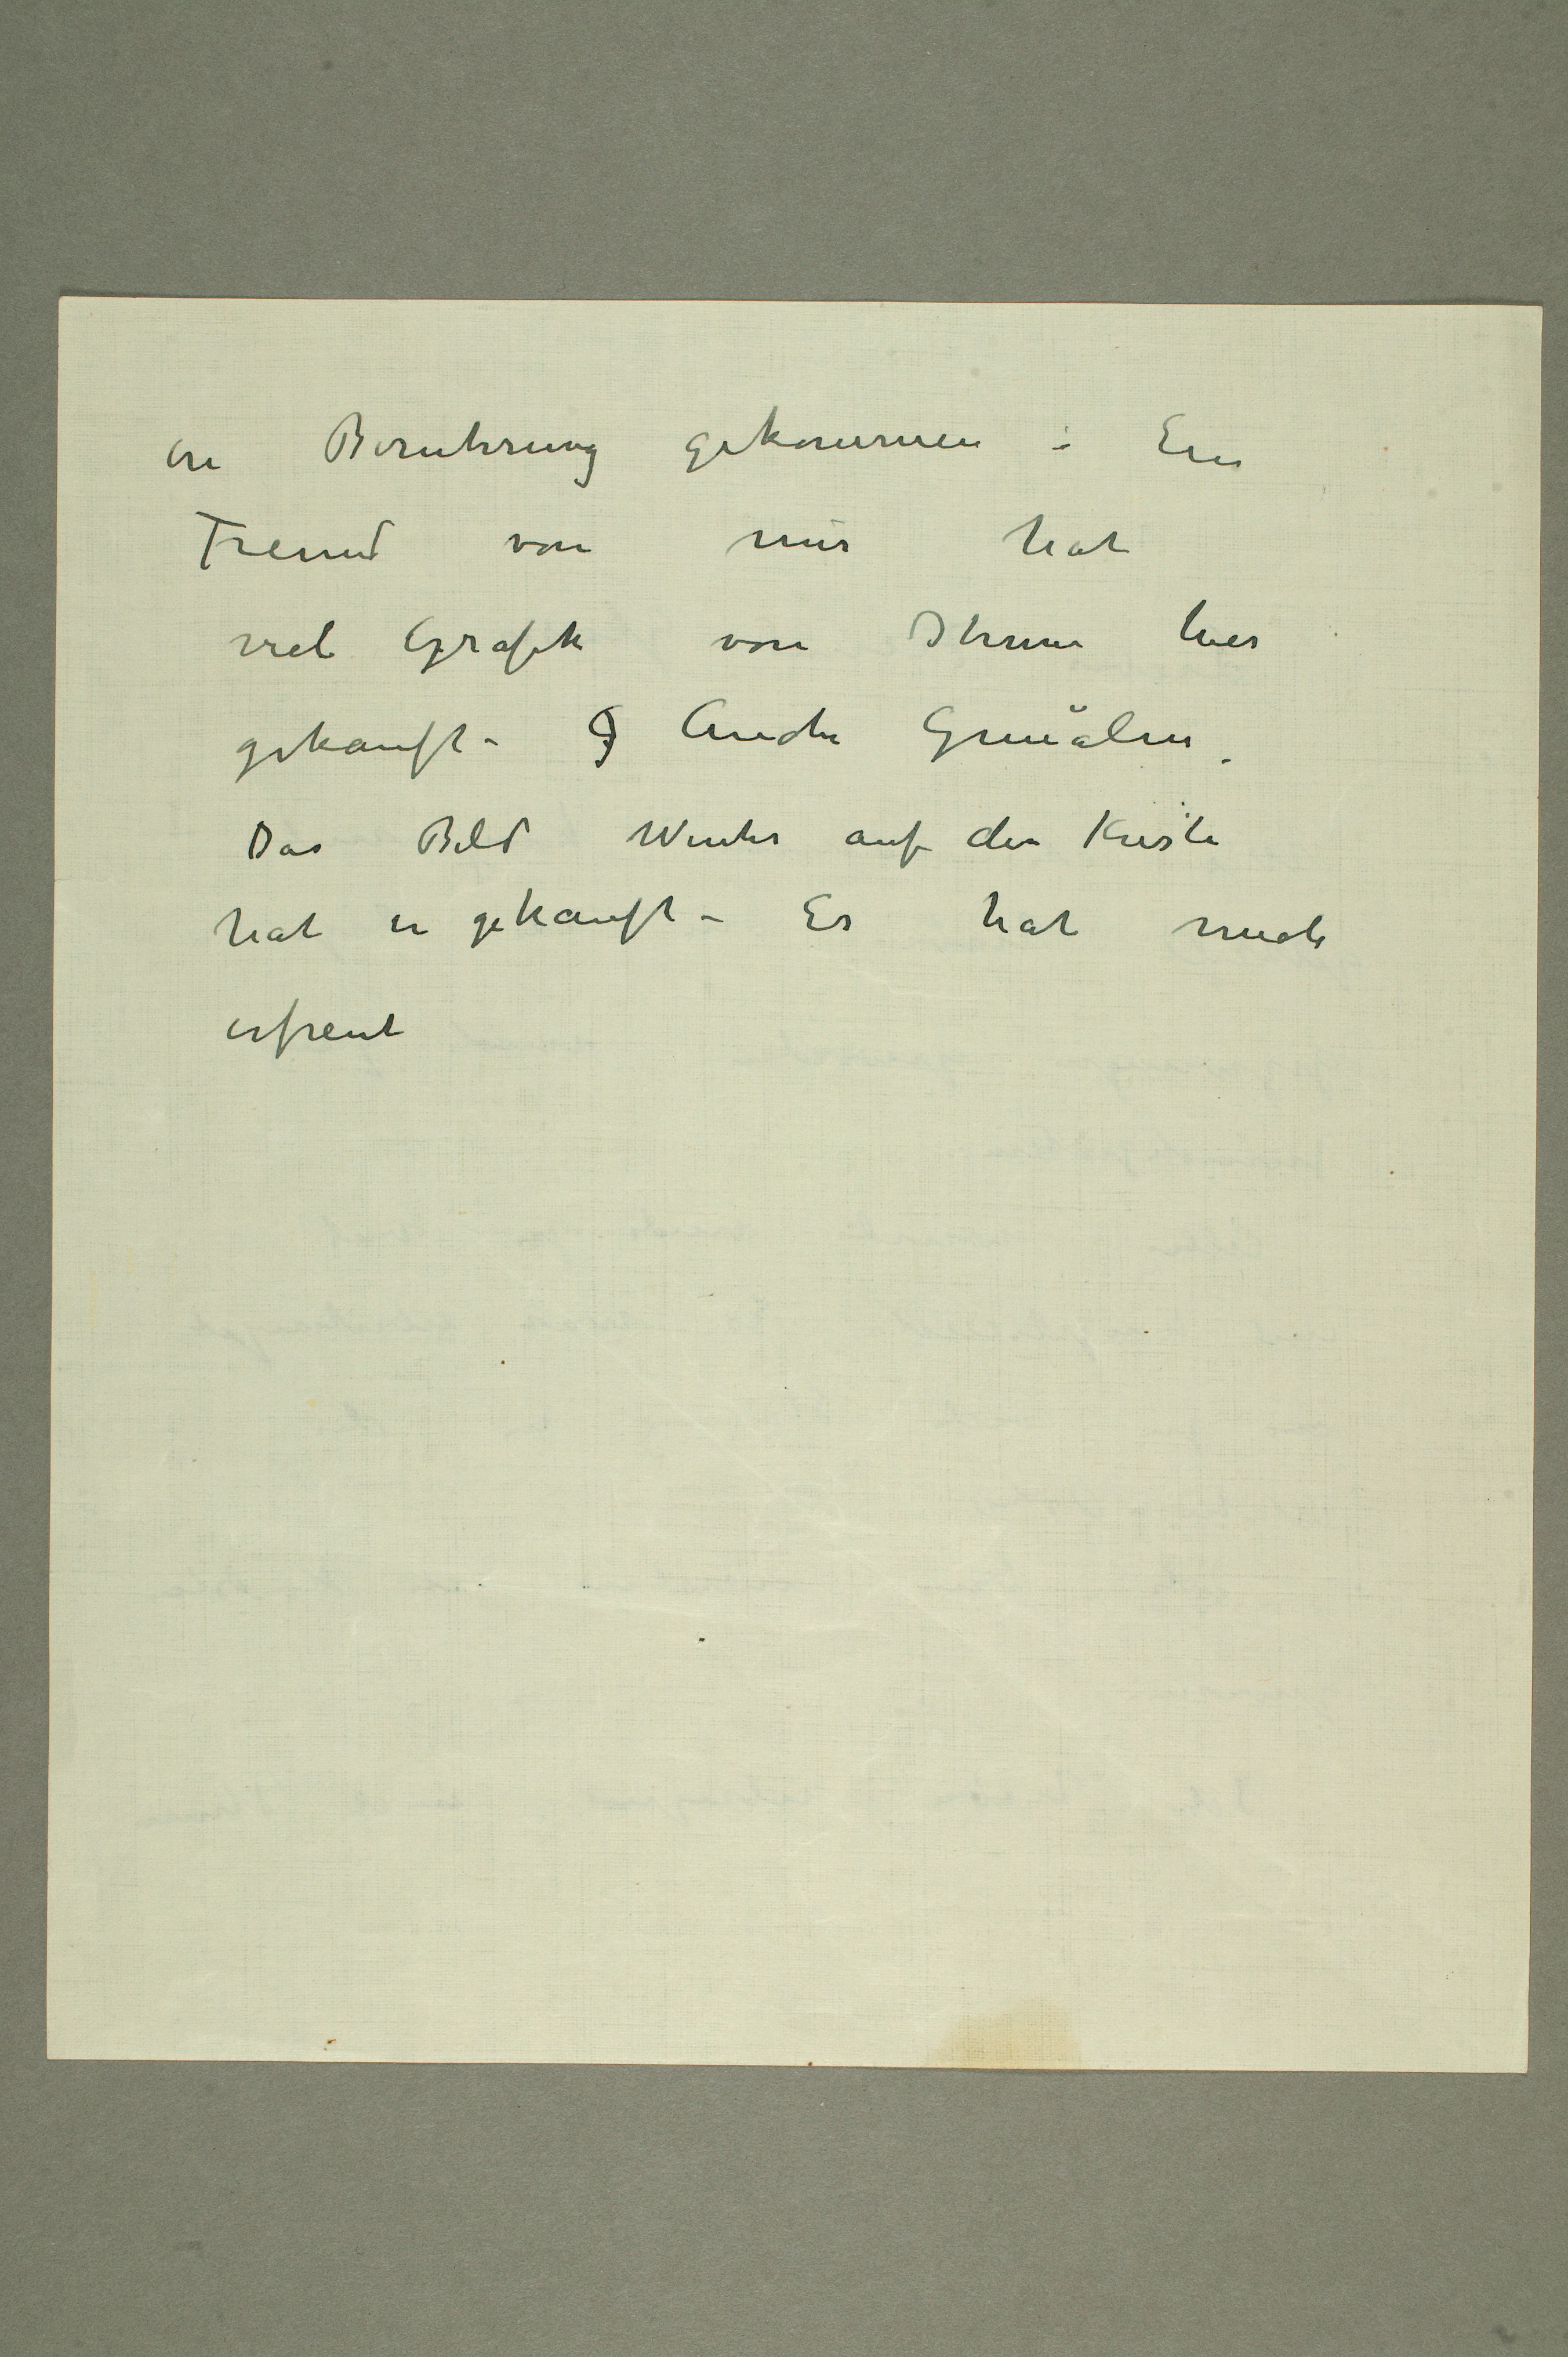 in Beruhrung gekommen : Ein
Freund von mir hat
viel Grafik von Ihnen hier
gekauft – Auch Gemälde.
Das Bild Winter auf der Küste
hat er gekauft – Es hat mich
erfreut